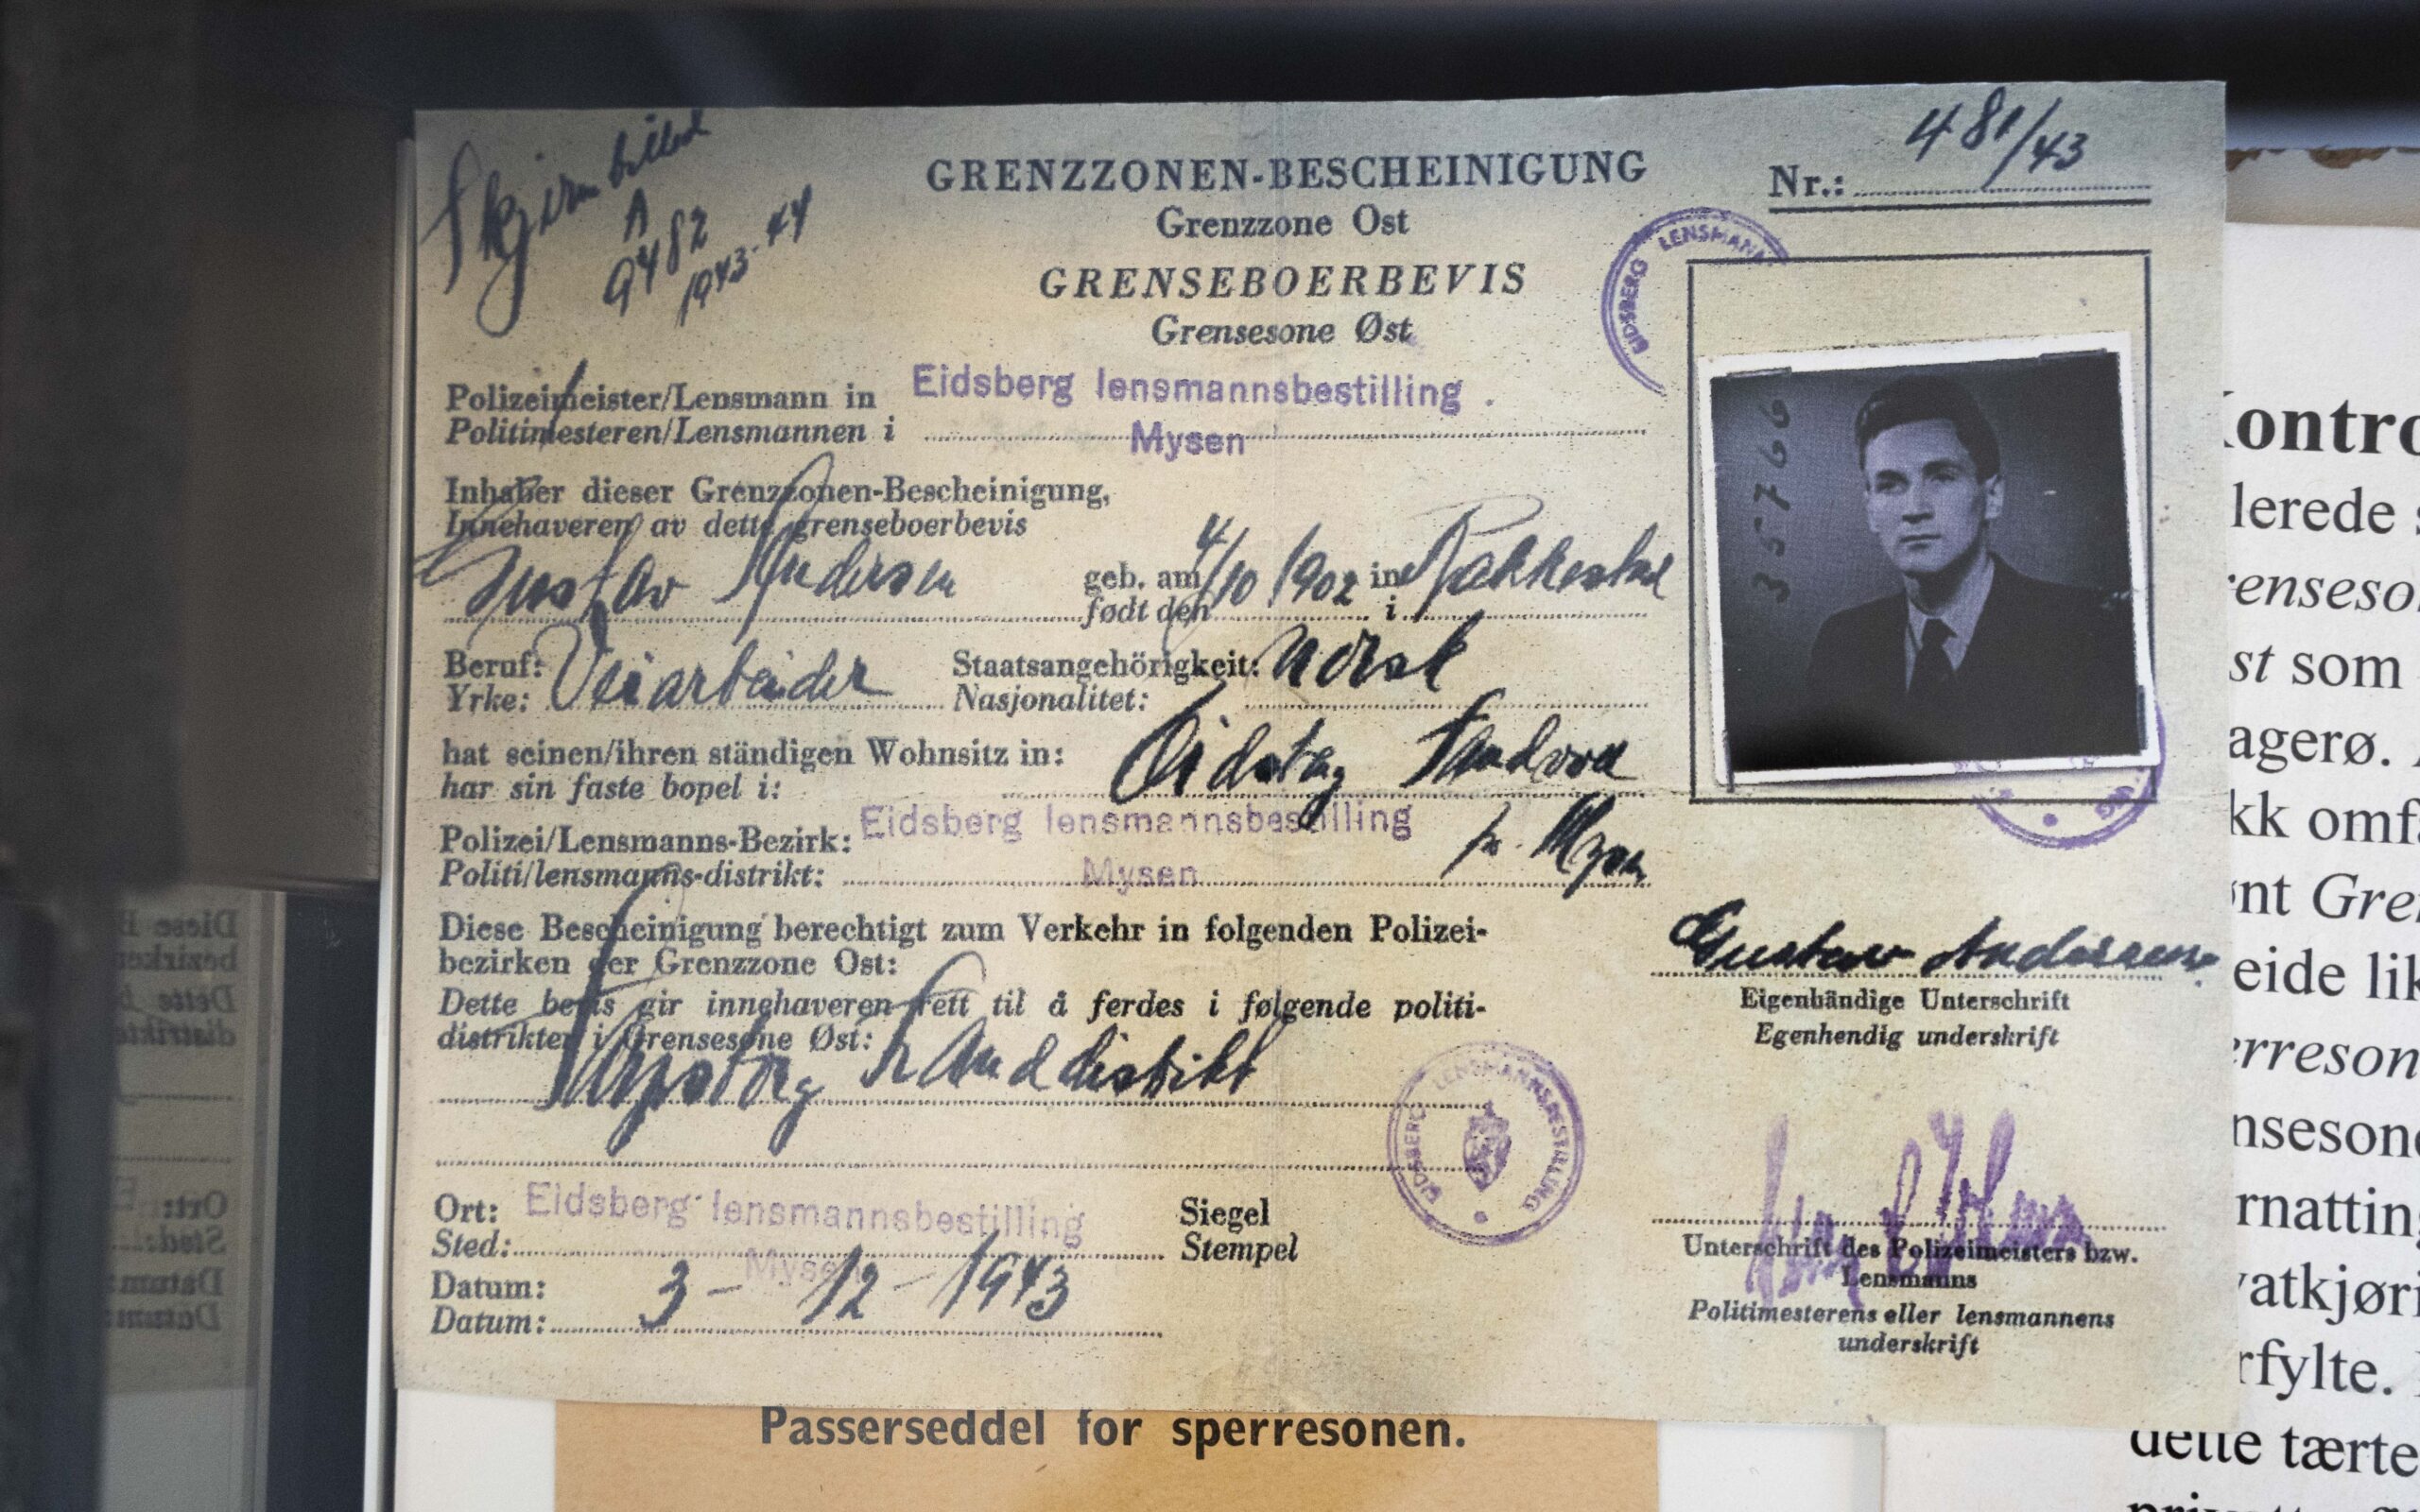 Skjermbilled
A
9482
1943-44
GRENZZONEN-BESCHEINIGUNG
Grenzzone Ost
GRENSEBOERBEVIS
Grensesone Øst
Nr.: 481/43
EIDSBERG LENSMANN
35766
Polizeimeister/Lensmann in Eidsberg lensmannsbestilling.
Politimesteren/Lensmannen i Mysen
Inhaber dieser Grenzzonen-Bescheinigung,
Innehaveren av dette grenseboerbevis
Gustav Andersen geb. am 4/10 1902 in Rakkestad
født den i
Beruf: Veiarbeider Staatsangehörigkeit: norsk
Yrke: Nasjonalitet:
hat seinen/ihren ständigen Wohnsitz in:
har sin faste bopel i:
Polizei/Lensmanns-Bezirk: Eidsberg lensmannsbestilling
pr. Mysen
Politi/lensmanns-distrikt: Mysen
Diese Bescheinigung berechtigt zum Verkehr in folgenden Polizei-
bezirken der Grenzzone Ost:
Dette bevis gir innehaveren rett til å ferdes i følgende politi-
distrikter i Grensesone Øst:
Gustav Anderssen.
Eigenhändige Unterschrift
Egenhendig underskrift
EIDSBERG LENSMANNSBESTILLING
Ort: Eidsberg lensmannsbestilling Siegel
Sted: Mysen Stempel
Datum: 3-12-1943
Datum:
Unterschrift des Polizeimeisters bzw.
Lensmanns
Politimesterens eller lensmannens
underskrift
Passerseddel for sperresonen.
ontro
lerede s
enseso
st som
agerø. A
kk omf
nt Gre
eide lik
rreson
nseson
rnatting
atkjøri
rfylte.
dette tærte